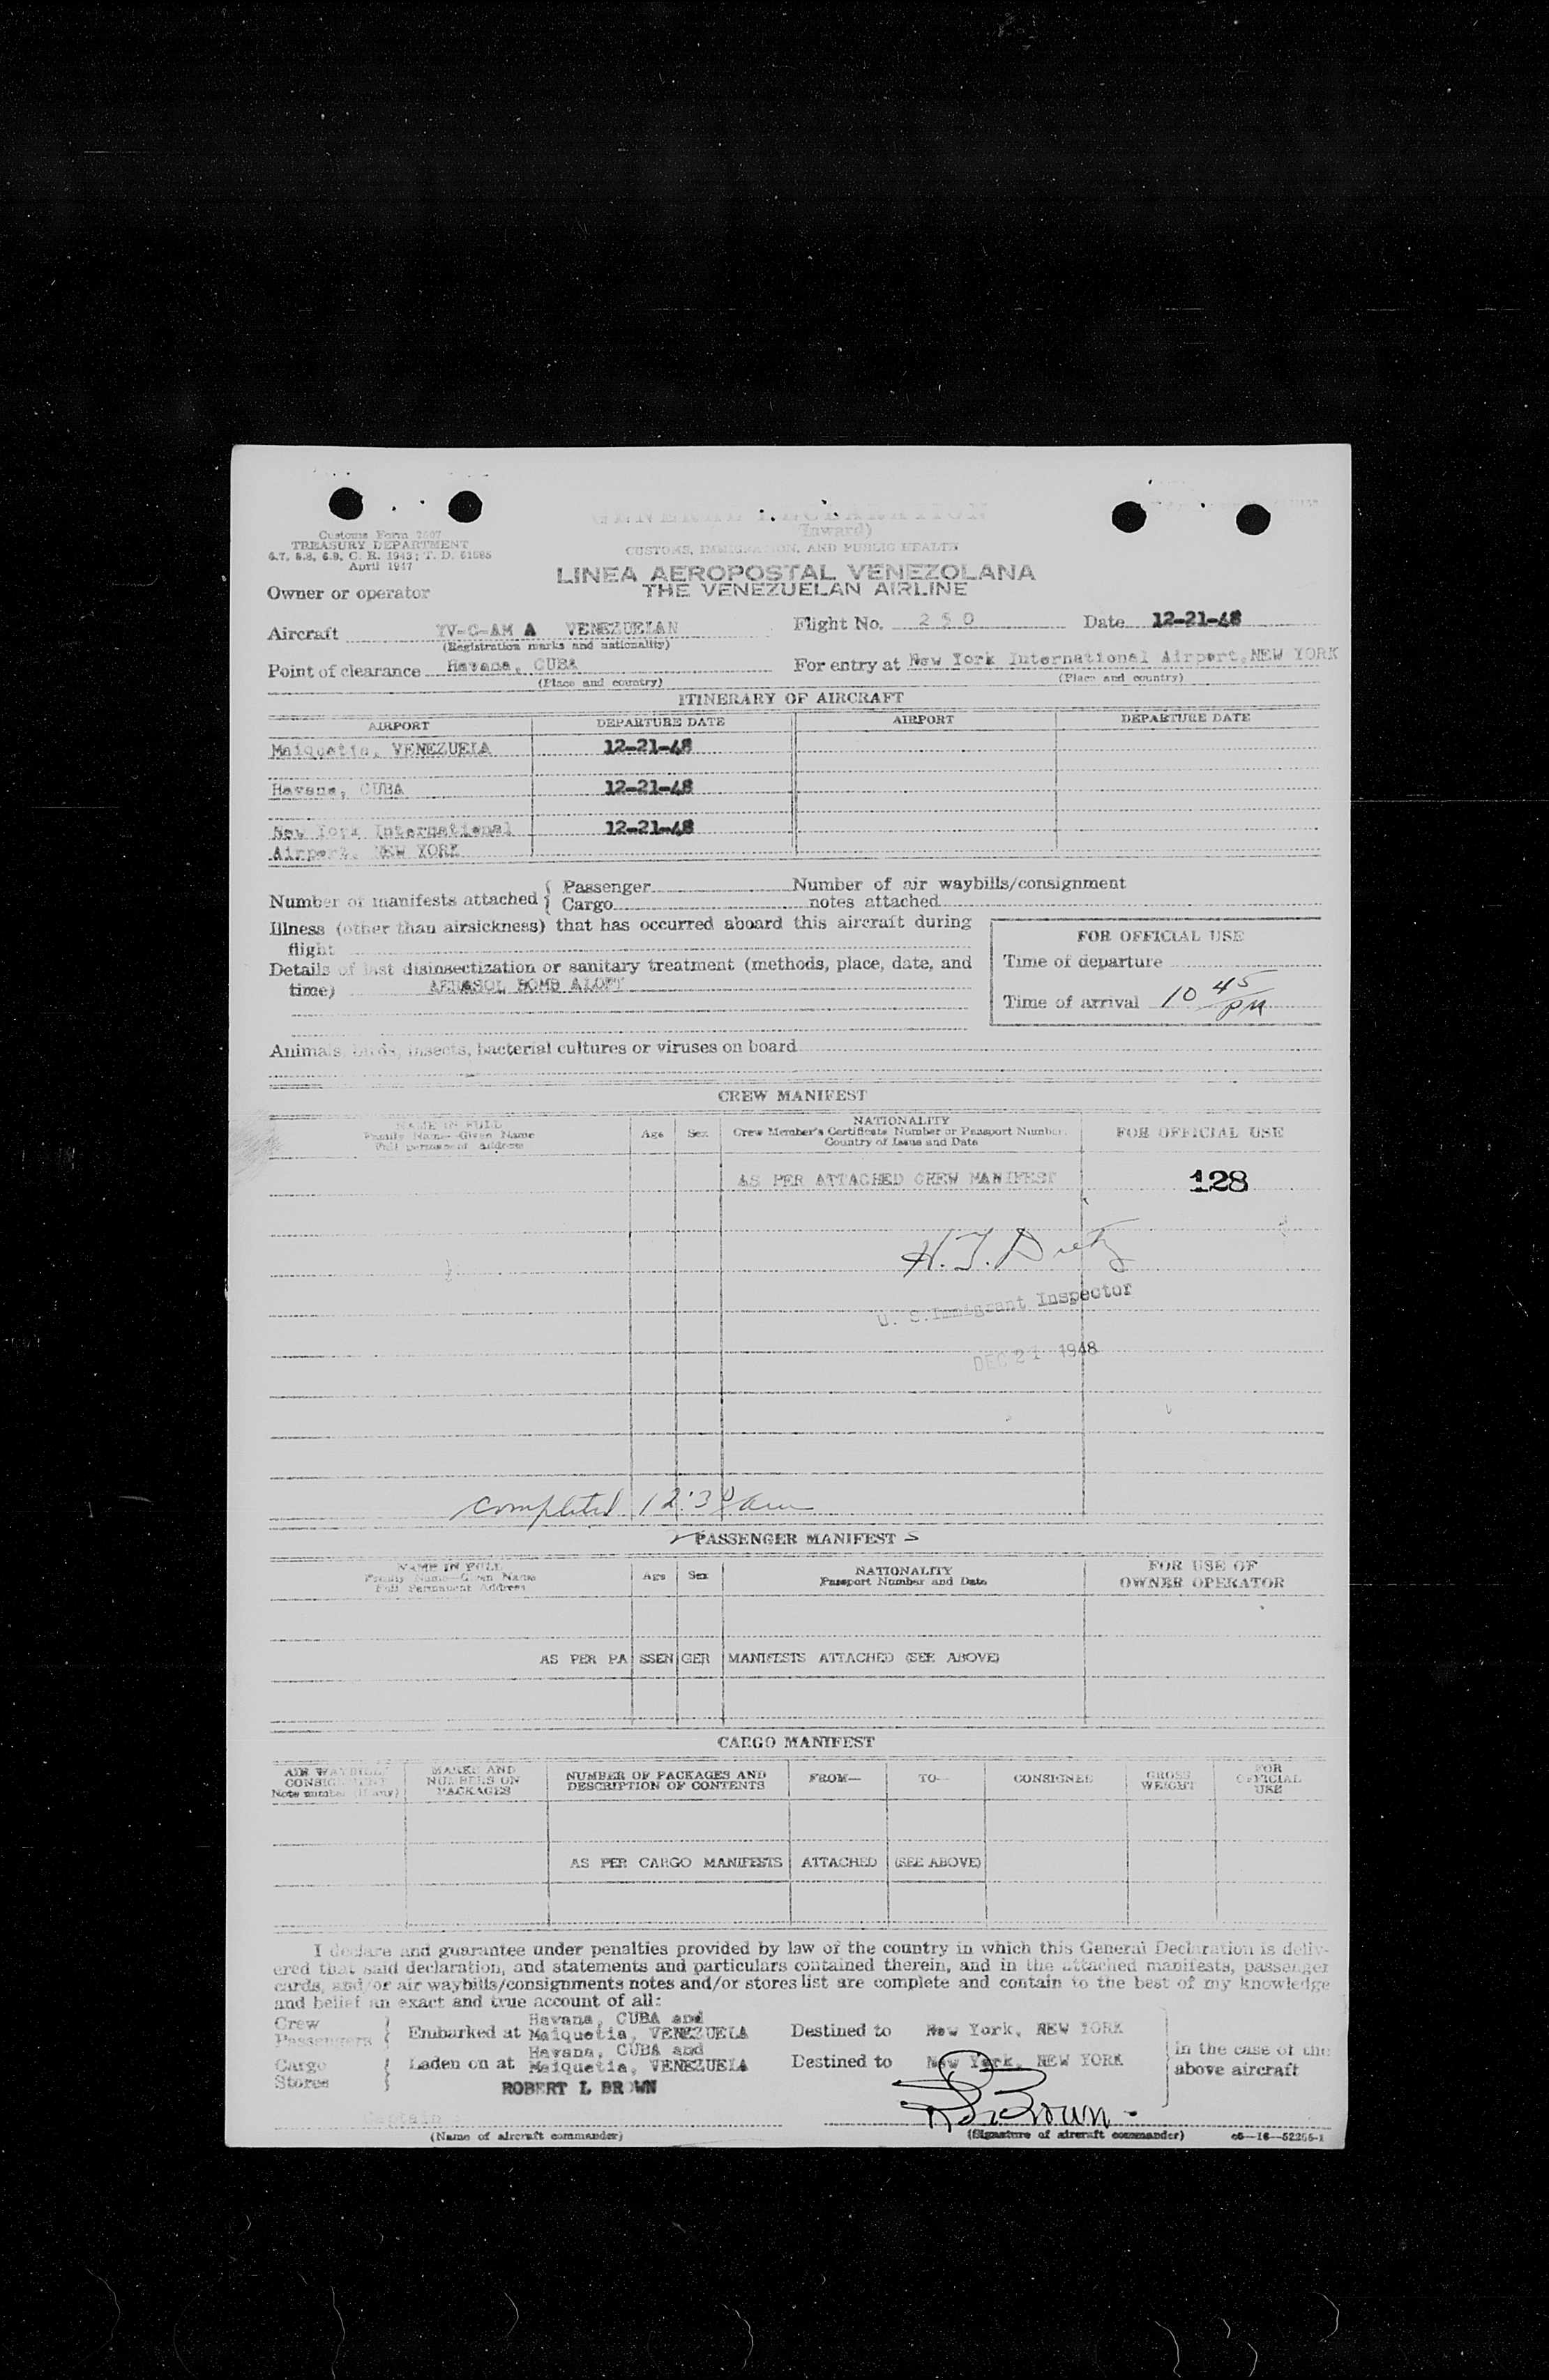 Customs Form 7507
TREASURY DEPARTMENT
6.7, 6.8, 6.9, C. R. 1943; T. D. 51595
April 1947
GENERAL DECLARATION
(Inward)
CUSTOMS, IMMIGRATION, AND PUBLIC HEALTH
LINEA AEROPOSTAL VENEZOLANA
THE VENEZUELAN AIRLINE
Owner or operator
Aircraft YV-C-AM A VENEZUELAN Flight No. 250 Date 12-21-48
(Registration marks and nationality)
Point of clearance Havana, CUBA For entry at New York International Airport, NEW YORK
(Place and country) (Place and country)
ITINERARY OF AIRCRAFT
AIRPORT DEPARTURE DATE AIRPORT DEPARTURE DATE
Maiquetia, VENEZUELA 12-21-48
Havana, CUBA 12-21-48
New York International 12-21-48
Airport, NEW YORK
Number of manifests attached { Passenger Number of air waybills/consignment
Cargo notes attached
Illness (other than airsickness) that has occurred aboard this aircraft during
flight
FOR OFFICIAL USE
Details of last disinsectization or sanitary treatment (methods, place, date, and
time) AERASOL BOMB ALOFT
Time of departure
Time of arrival 10 45 PM
Animals, birds, insects, bacterial cultures or viruses on board
CREW MANIFEST
NAME IN FULL
Family Name—Given Name
Full permanent Address
Age Sex
NATIONALITY
Crew Member's Certificate Number or Passport Number,
Country of Issue and Date
FOR OFFICIAL USE
AS PER ATTACHED CREW MANIFEST 128
H. J. Dietz
U. S. Immigrant Inspector
DEC 21 1948
completed 12:30 am
PASSENGER MANIFEST S
NAME IN FULL
Family Name—Given Name
Full Permanent Address
Age Sex
NATIONALITY
Passport Number and Date
FOR USE OF
OWNER OPERATOR
AS PER PASSENGER MANIFESTS ATTACHED (SEE ABOVE)
CARGO MANIFEST
AIR WAYBILL/
CONSIGNMENT
Note number (if any)
MARKS AND
NUMBERS ON
PACKAGES
NUMBER OF PACKAGES AND
DESCRIPTION OF CONTENTS
FROM— TO— CONSIGNEE
GROSS
WEIGHT
FOR
OFFICIAL
USE
AS PER CARGO MANIFESTS ATTACHED (SEE ABOVE)
I declare and guarantee under penalties provided by law of the country in which this General Declaration is deliv-
ered that said declaration, and statements and particulars contained therein, and in the attached manifests, passenger
cards, and/or air waybills/consignments notes and/or stores list are complete and contain to the best of my knowledge
and belief an exact and true account of all:
Crew
Passengers
Embarked at Havana, CUBA and
Maiquetia, VENEZUELA
Destined to New York, NEW YORK
Cargo
Stores
Laden on at Havana, CUBA and
Maiquetia, VENEZUELA
Destined to New York, NEW YORK
In the case of the
above aircraft
ROBERT L BROWN
Captain
(Name of aircraft commander) (Signature of aircraft commander) c6—16—52255-1